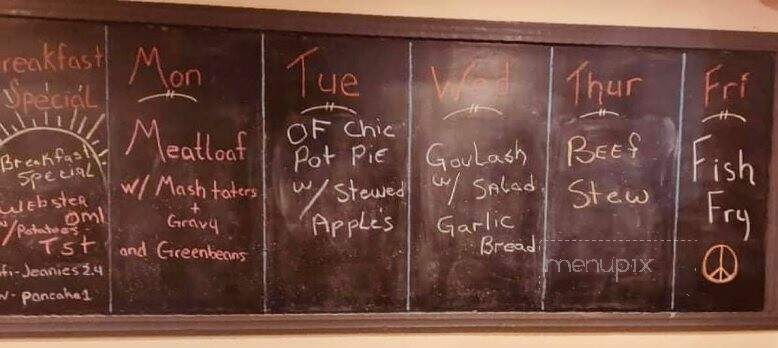 reakfast
Special
Breakfast
SPECIAL
WEBSTER
Oml
w/Potatoes
TST
fi-Jeanies 2.4
w-pancake1
Mon
Meatloaf
w/ Mash taters
+
Gravy
and Greenbeans
Tue
OF Chic
Pot PiE
w/ Stewed
Apple's
Wed
GouLash
w/ SALad
Garlic
Bread
Thur
BEEf
Stew
Fri
Fish
Fry
menupix